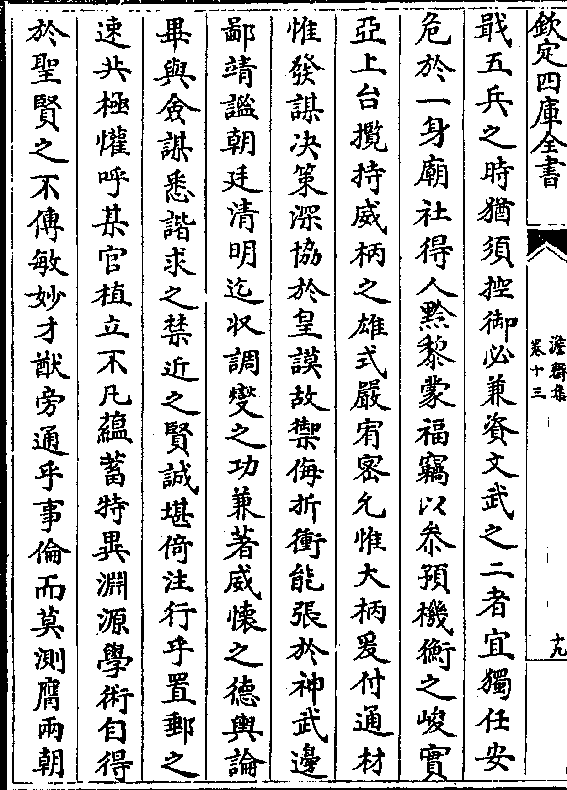 欽定四庫全書
澹齋集
卷十三
十九
戢五兵之時猶須控御必兼資文武之二者宜獨任安
危於一身廟社得人黔黎蒙福竊以叅預機衡之峻實
亞上台攬持威柄之雄式嚴宥密允惟大柄爰付通材
惟發謀决策深協於皇謨故禦侮折衝能張於神武邊
鄙靖謐朝廷清明迄収調燮之功兼著威懷之德輿論
畢與僉謀悉諧求之禁近之賢誠堪倚注行乎置郵之
速共極懽呼某官植立不凡藴蓄特異淵源學術自得
於聖賢之不傳敏妙才猷旁通乎事倫而莫測膺兩朝